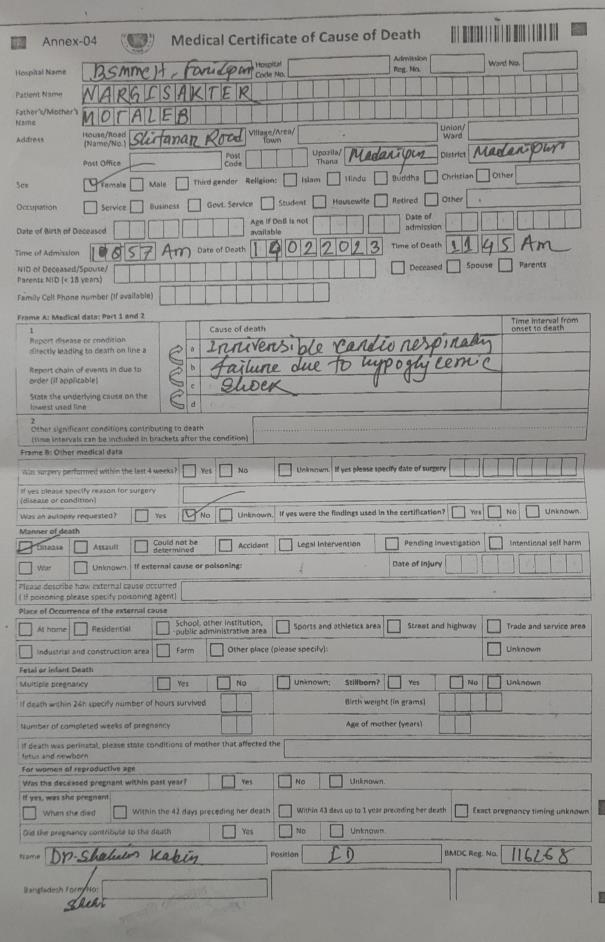 Annex-04 Medical Certificate of Cause of Death
Hospital Name BSMMCH, Faridpur Hospital Code No. Admission Reg. No. Ward No.
Patient Name NARGISAKTER
Father's/Mother's Name MOTALEB
Address House/Road (Name/No.) Road Village/Area/Town Union/Ward
Post Office Post Code Upozila/Thana Madaripur District Madaripur
Sex Female Male Third gender Religion: Islam Hindu Buddha Christian Other
Occupation Service Business Govt. Service Student Housewife Retired Other
Date of Birth of Deceased Age if DoB is not available Date of admission
Time of Admission 10857 Am Date of Death 14022023 Time of Death 1145 Am
NID of Deceased/Spouse/Parents NID (< 18 years) Deceased Spouse Parents
Family Cell Phone number (if available)
Frame A: Medical data: Part 1 and 2
1 Cause of death Time interval from onset to death
Report disease or condition directly leading to death on line a a Irriversible cardio respiratory
Report chain of events in due to order (if applicable) b failure due to hypoglycemic
State the underlying cause on the lowest used line c shock
d
2
Other significant conditions contributing to death (time intervals can be included in brackets after the condition)
Frame B: Other medical data
Was surgery performed within the last 4 weeks? Yes No Unknown. If yes please specify date of surgery
If yes please specify reason for surgery (disease or condition)
Was an autopsy requested? Yes No Unknown. If yes were the findings used in the certification? Yes No Unknown.
Manner of death
Disease Assault Could not be determined Accident Legal Intervention Pending Investigation Intentional self harm
War Unknown. If external cause or poisoning: Date of Injury
Please describe how external cause occurred (If poisoning please specify poisoning agent)
Place of Occurrence of the external cause
At home Residential School, other institution, public administrative area Sports and athletics area Street and highway Trade and service area
Industrial and construction area Farm Other place (please specify): Unknown
Fetal or infant Death
Multiple pregnancy Yes No Unknown; Stillborn? Yes No Unknown
If death within 24h specify number of hours survived Birth weight (in grams)
Number of completed weeks of pregnancy Age of mother (years)
If death was perinatal, please state conditions of mother that affected the fetus and newborn
For women of reproductive age
Was the deceased pregnant within past year? Yes No Unknown.
If yes, was she pregnant
When she died Within the 42 days preceding her death Within 43 days up to 1 year preceding her death Exact pregnancy timing unknown
Did the pregnancy contribute to the death Yes No Unknown.
Name Dr. Kabir Position BMDC Reg. No. 116268
Bangladesh Form No: